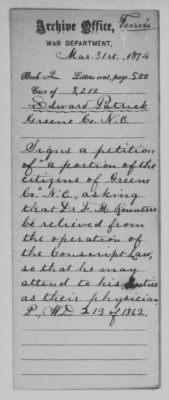 Ferris
Archive Office,
WAR DEPARTMENT,
Mar. 31st, 1874
Book 2 Letters sent, page 500
Case of 8,210
Edward Patrick
Greene Co. N.C.
Signs a petition
of "a portion of the
citizens of Greene
Co." N.C., asking
that Dr F. M. Rountree
be relieved from
the operation of
the Conscript Law,
so that he may
attend to his duties
as their physician
P., W.D. 213 of 1862.